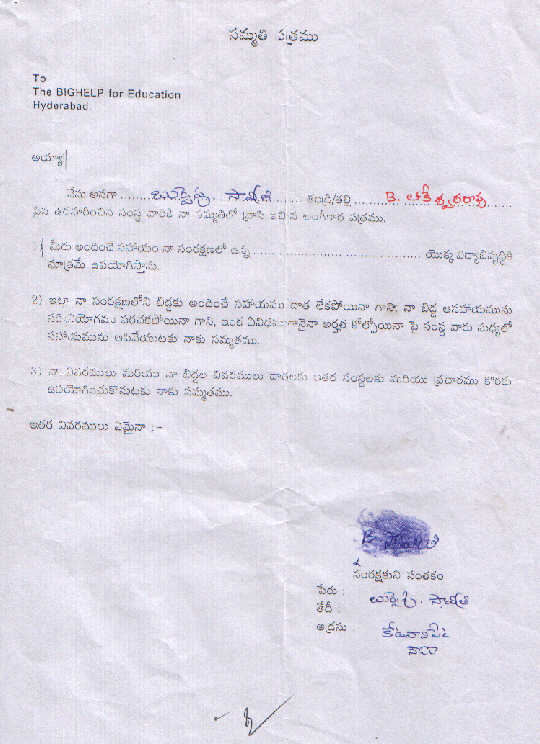 సమ్మతి పత్రము
To
The BIGHELP for Education
Hyderabad.
అయ్యా
నేను అనగా ........ తండ్రి/తల్లి ........ B.
పైన ఉదహరించిన సంస్థ వారికి నా సమ్మతితో వ్రాసి ఇచ్చిన అంగీకార పత్రము.
1) మీరు అందించే సహాయం నా సంరక్షణలో ఉన్న ........ యొక్క విద్యాభివృద్ధికి
మాత్రమే ఉపయోగిస్తాను.
2) ఇలా నా సంరక్షణలోని బిడ్డకు అందించే సహాయము దాత లేకపోయినా గాని, నా బిడ్డ ఆసహాయమును
సద్వినియోగము పరచకపోయినా గాని, ఇంక ఏవిధముగానైనా అర్హత కోల్పోయినా పై సంస్థ వారు మధ్యలో
సహాయమును ఆపివేయుటకు నాకు సమ్మతము.
3) నా వివరములు మరియు నా బిడ్డల వివరములు దాతలకు ఇతర సంస్థలకు మరియు ప్రచారము కొరకు
ఉపయోగించుకొనుటకు నాకు సమ్మతము.
ఇతర వివరములు ఏమైనా :-
సంరక్షకుని సంతకం
పేరు :
తేదీ :
అడ్రసు